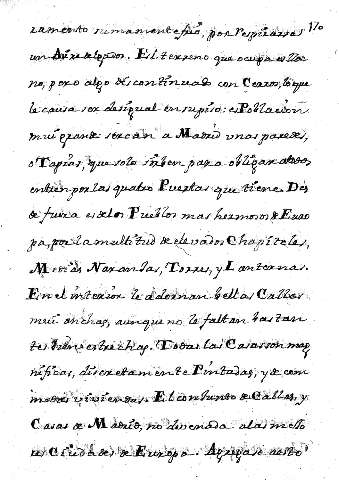 170
ramento sumamente frio, por respirarse
un Ayre delgado. El terreno que ocupa es lla-
no, pero algo discontinuado con Cerros, lo que
le causa ser desigual en su piso: es Poblacion
mui grande: sercan a Madrid unas paredes,
o Tapias, que solo sirben para obligar a todos
entren por las quatro Puertas que tiene. Des-
de fuera es de los Pueblos mas hermosos de Euro
pa, por la multitud de elevados Chapiteles,
Medias Naranjas, Torres, y Lanternas.
En el interior le adornan bellas Calles
mui anchas, aunque no le faltan bastan
tes bien estrechas. Todas las Casas son mag
nificas, discretamente Pintadas, y de com
modas viviendas. El conjunto de Calles, y
Casas de Madrid, no dice nada a las mejo
res Ciudades de Europa.